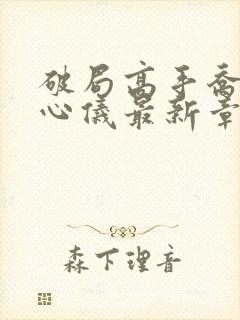 破局高手乔
心仪最新章
森下理音